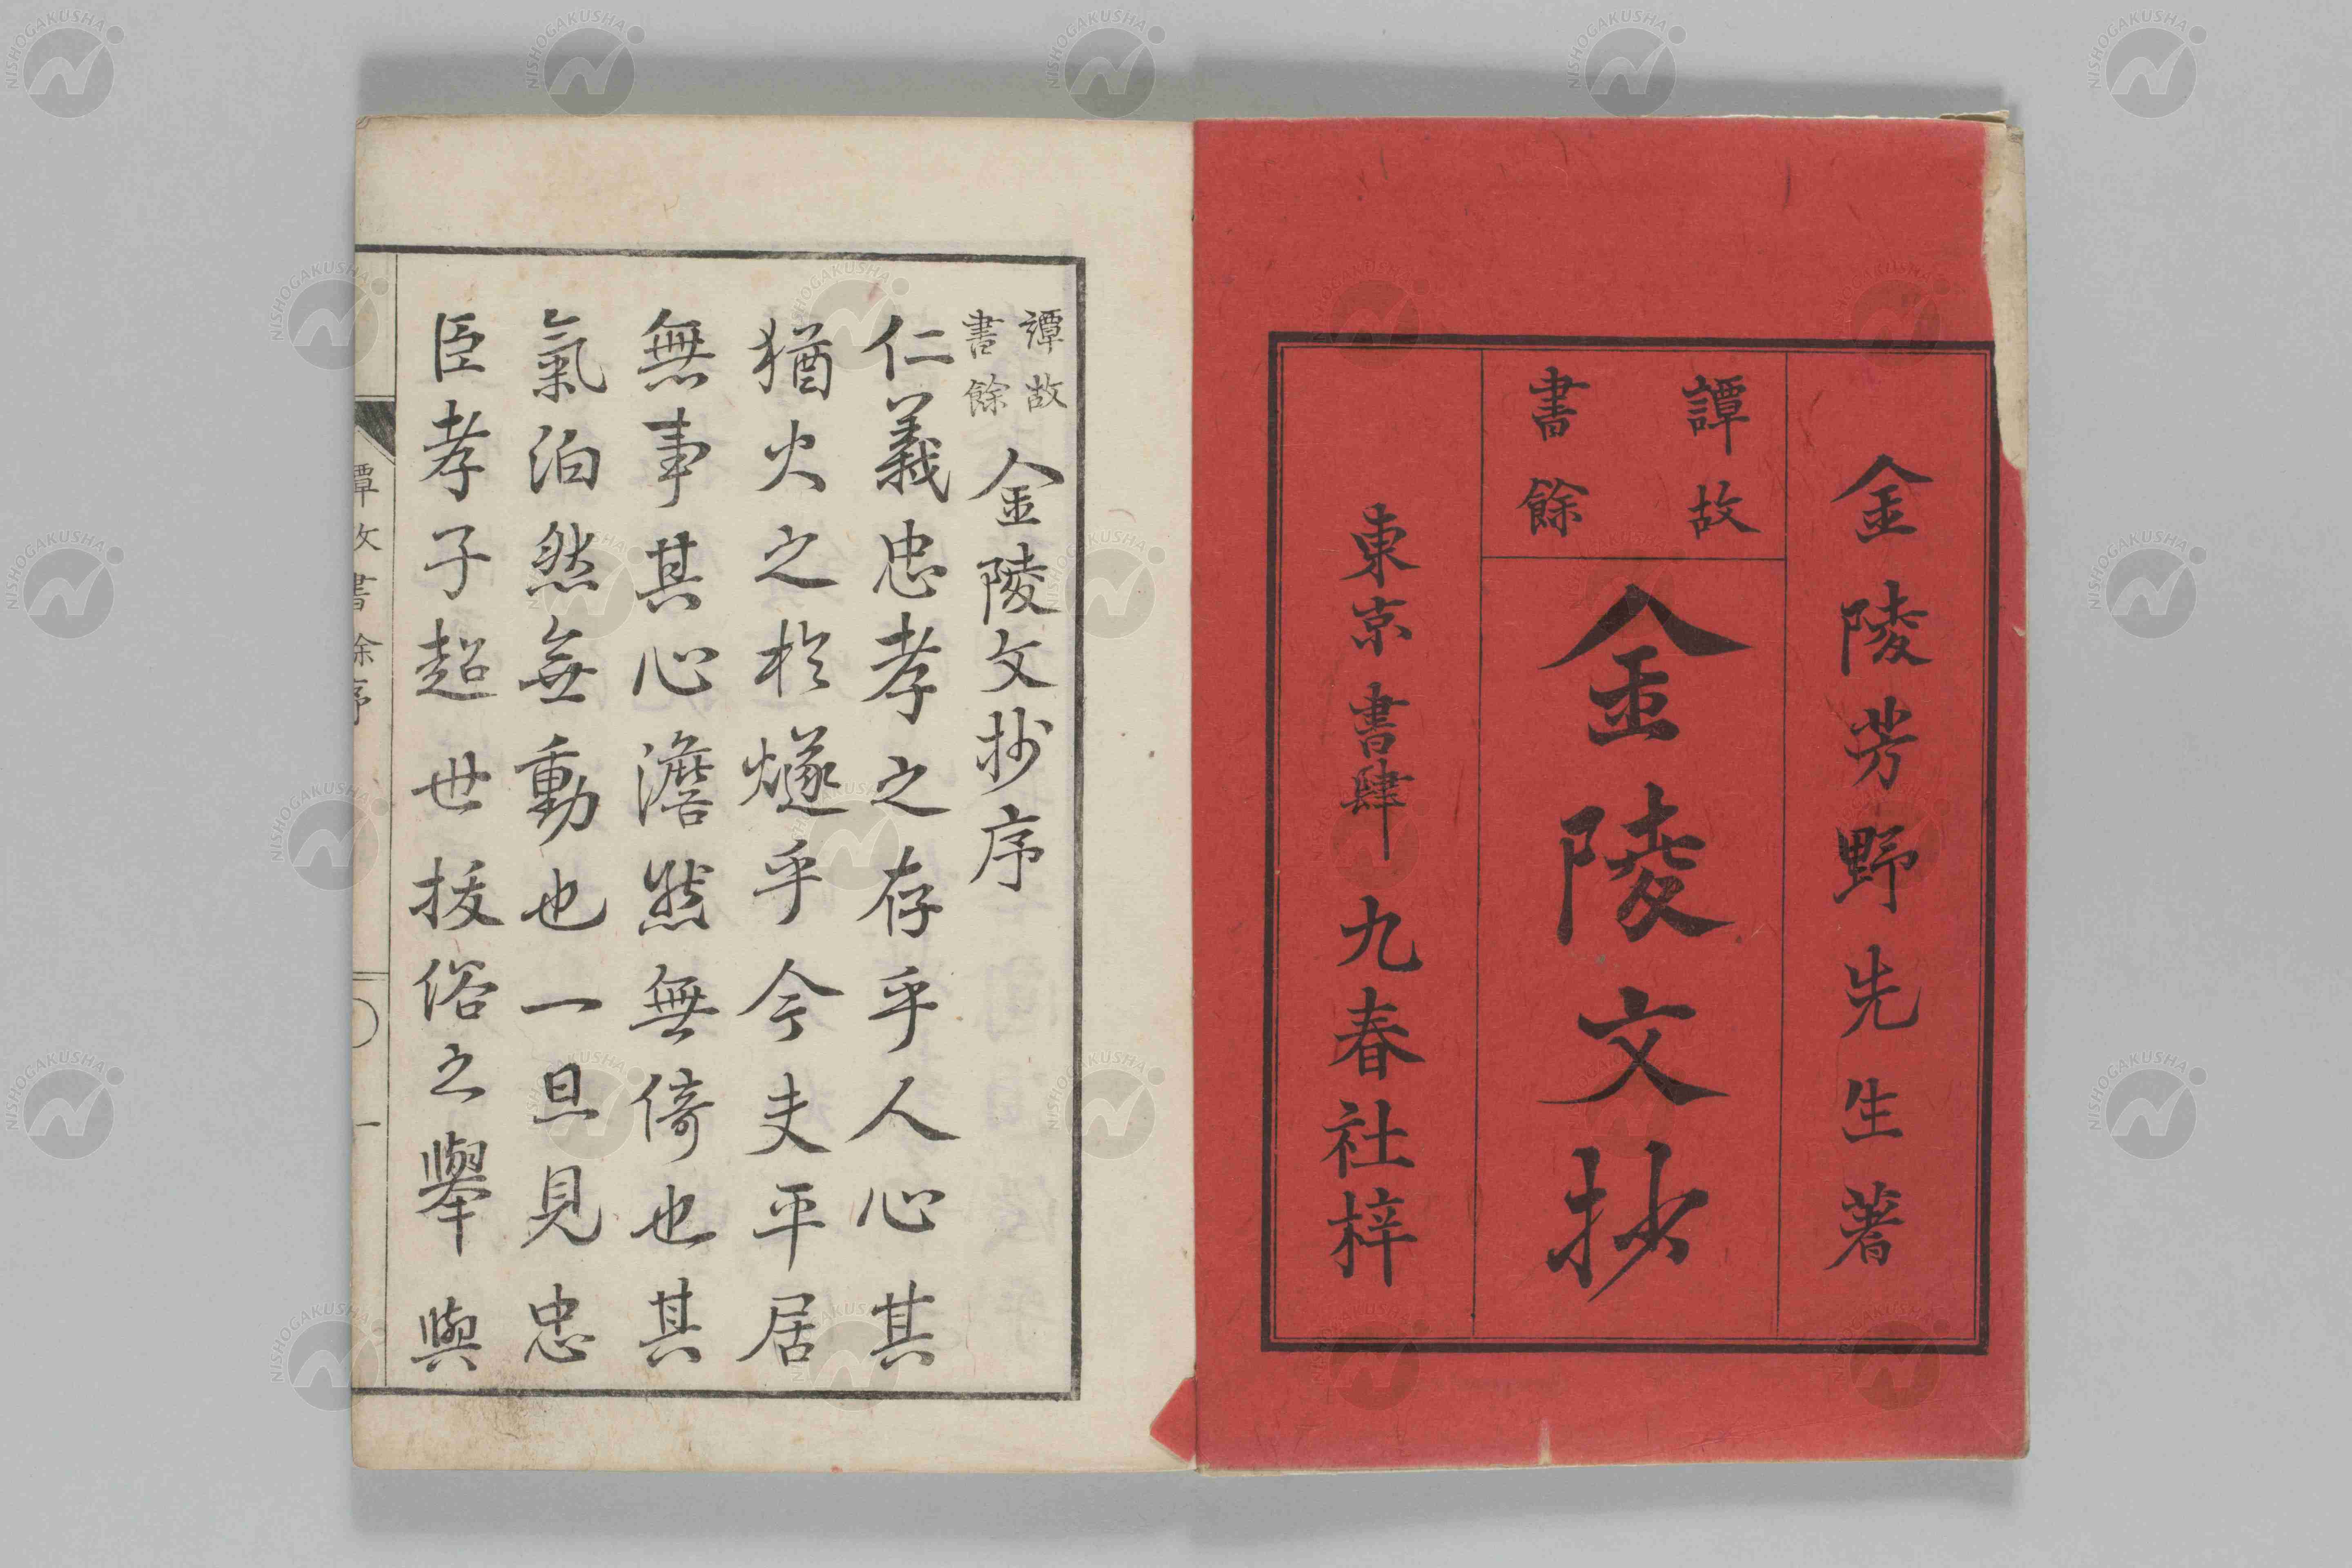 金陵芳野先生著
譚故
書餘
金陵文抄
東京 書肆 九春社梓
譚故
書餘
金陵文抄序
仁義忠孝之存乎人心其
猶火之於燧乎今夫平居
無事其心澹然無倚也其
氣泊然無動也一旦見忠
臣孝子超世拔俗之舉與
譚故書餘序
一
NISHOGAKUSHA